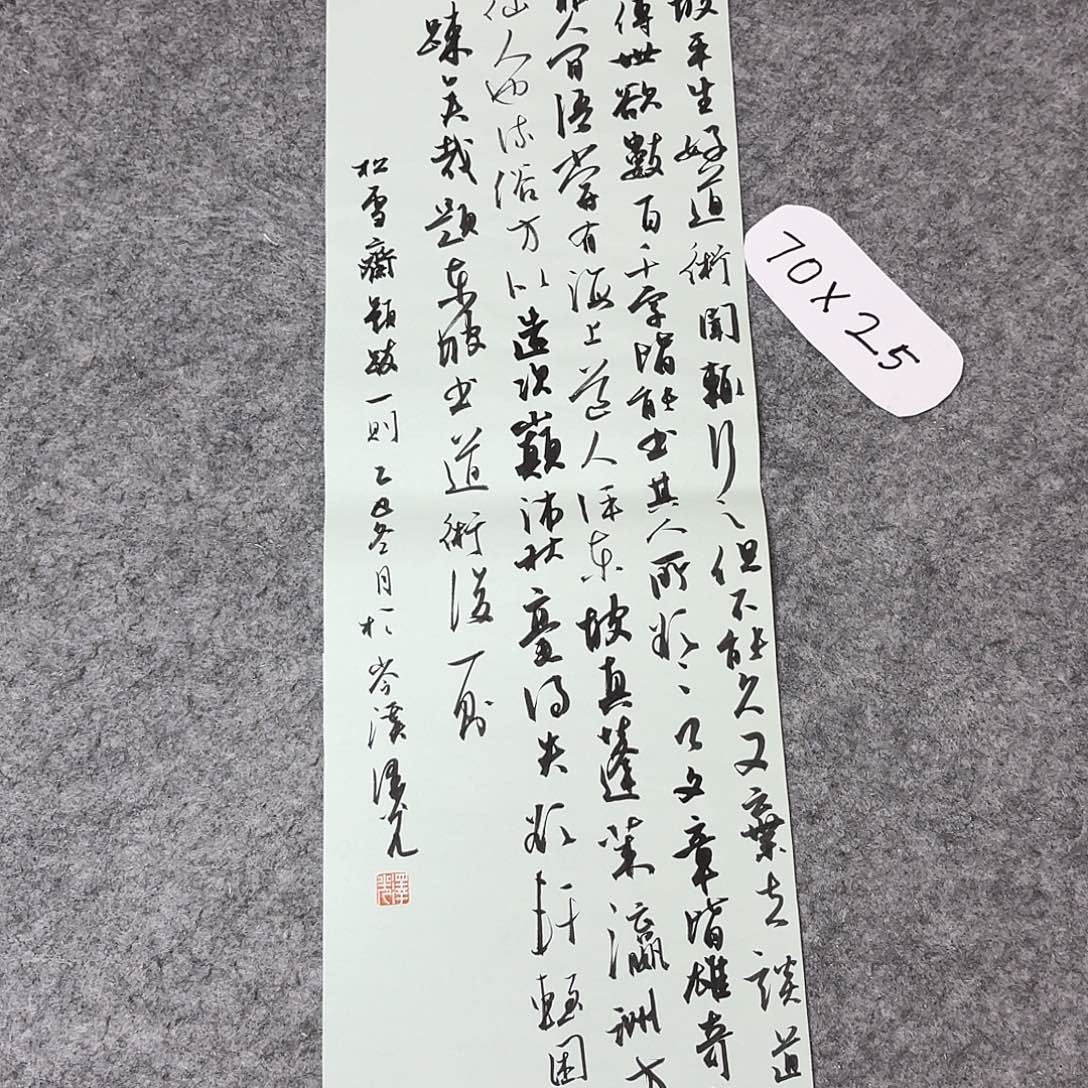 坡平生好道術聞輒行之但不能久又棄去談道
傳世欲數百千字皆能書其人所欲言文章皆雄奇
非人間語嘗有海上道人評東坡真蓬萊瀛洲方
仙人也流俗方以造次巔沛秋毫得失欲軒輊困
疎矣哉題東坡書道術後一則
松雪齋題跋一則乙丑冬月於岑溪
70×25